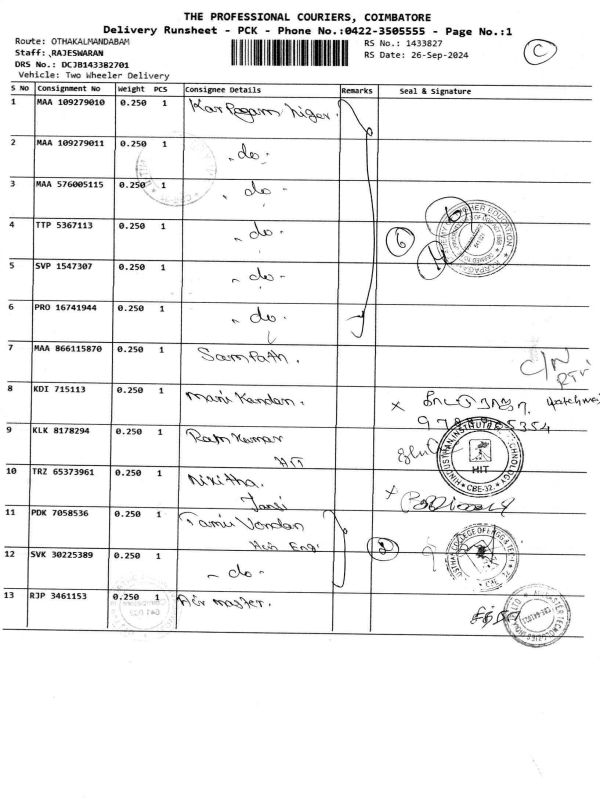 THE PROFESSIONAL COURIERS, COIMBATORE
Delivery Runsheet - PCK - Phone No.:0422-3505555 - Page No.:1
Route: OTHAKALMANDABAM RS No.: 1433827
Staff: RAJESWARAN RS Date: 26-Sep-2024
DRS No.: DCJB143382701
Vehicle: Two Wheeler Delivery
C
S No Consignment No Weight PCS Consignee Details Remarks Seal & Signature
1 MAA 109279010 0.250 1 Karpagam
2 MAA 109279011 0.250 1 - do -
3 MAA 576005115 0.250 1 - do -
4 TTP 5367113 0.250 1 - do - 6
5 SVP 1547307 0.250 1 - do -
6 PRO 16741944 0.250 1 - do -
7 MAA 866115870 0.250 1 Sampath. C/N
8 KDI 715113 0.250 1 Mani Kandan.
9 KLK 8178294 0.250 1 Ram Kumar
HIT
10 TRZ 65373961 0.250 1 Nikitha.
11 PDK 7058536 0.250 1
2
12 SVK 30225389 0.250 1 - do -
13 RJP 3461153 0.250 1 Air master.
HIT
CBE-32.